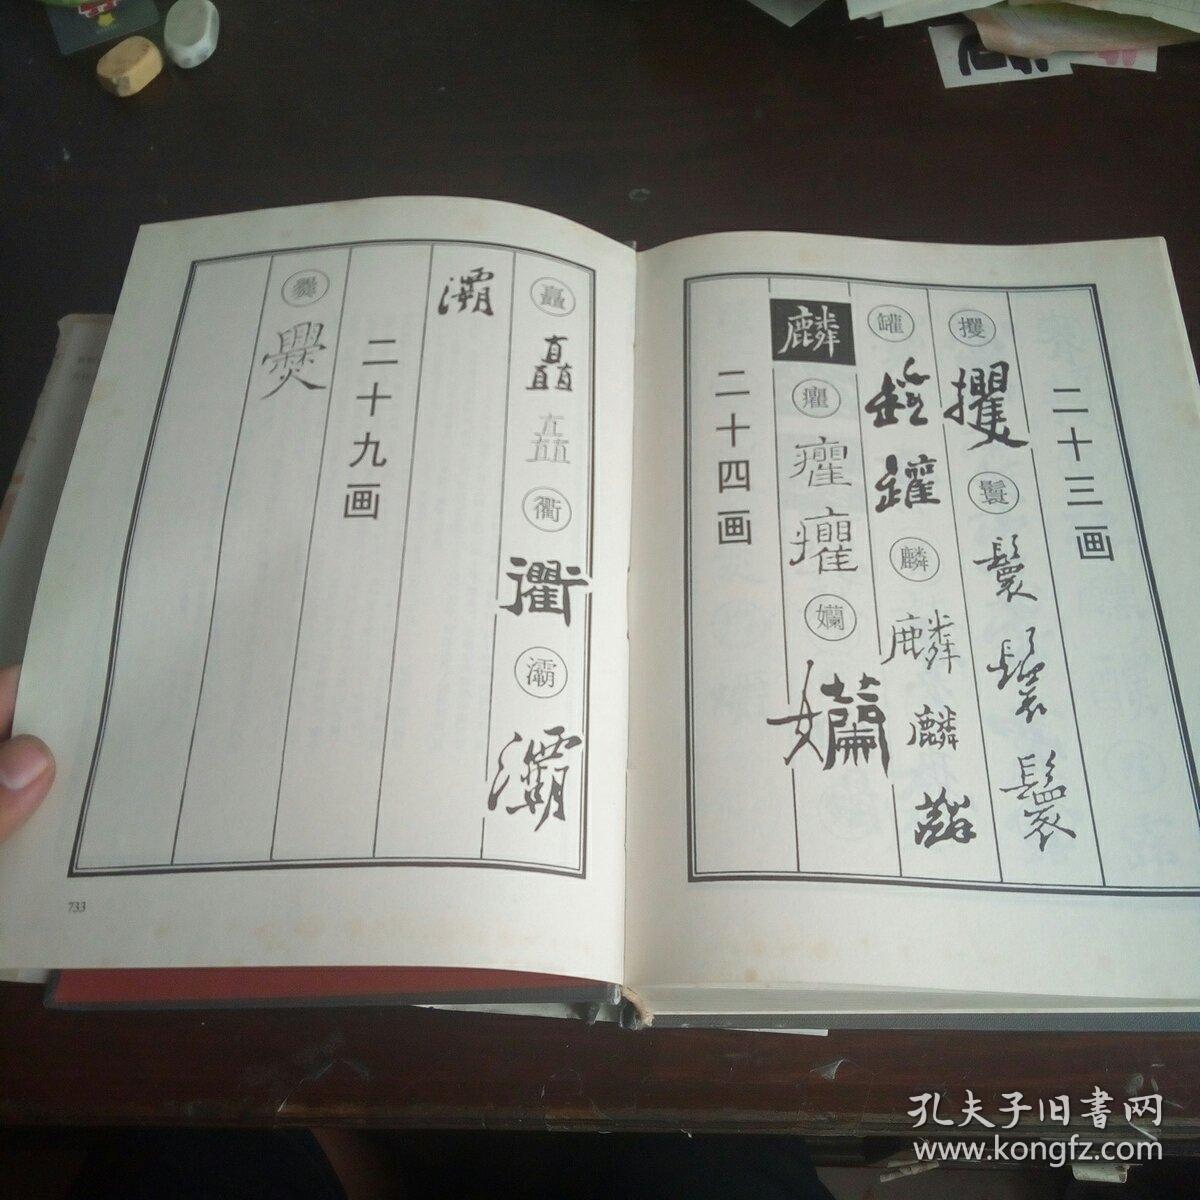 二十三画
攫
攫
鬟
鬟
鬟
鬟
罐
罐
罐
麟
麟
麟
麟
麟
癯
癯
癯
孏
孏
二十四画
矗
矗
矗
衢
衢
灞
灞
灞
二十九画
爨
爨
733
孔夫子旧书网
www.kongfz.com